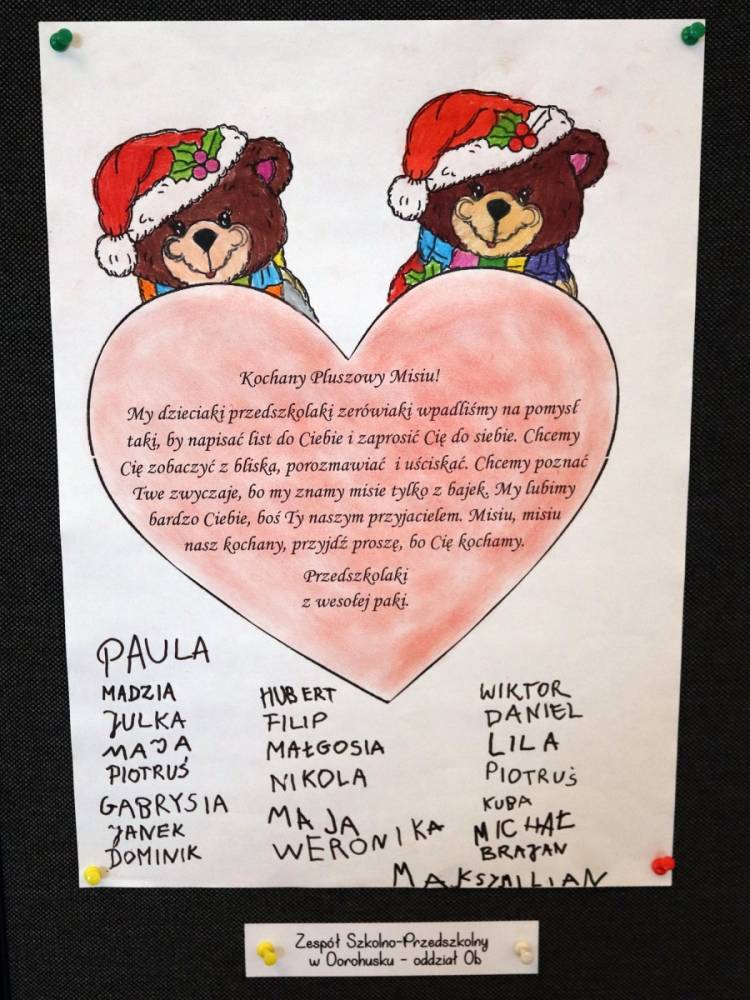 Kochany Pluszowy Misiu!
My dzieciaki przedszkolaki zerówiaki wpadliśmy na pomysł
taki, by napisać list do Ciebie i zaprosić Cię do siebie. Chcemy
Cię zobaczyć z bliska, porozmawiać i uściskać. Chcemy poznać
Twe zwyczaje, bo my znamy misie tylko z bajek. My lubimy
bardzo Ciebie, boś Ty naszym przyjacielem. Misiu, misiu
nasz kochany, przyjdź proszę, bo Cię kochamy.
Przedszkolaki
z wesołej paki.
PAULA
MADZIA
JULKA
MAJA
PIOTRUŚ
GABRYSIA
JANEK
DOMINIK
HUBERT
FILIP
MAŁGOSIA
NIKOLA
MAJA
WERONIKA
WIKTOR
DANIEL
LILA
PIOTRUŚ
KUBA
MICHAŁ
BRAJAN
MAKSYMILIAN
Zespół Szkolno-Przedszkolny
w Dorohusku - oddział 0b